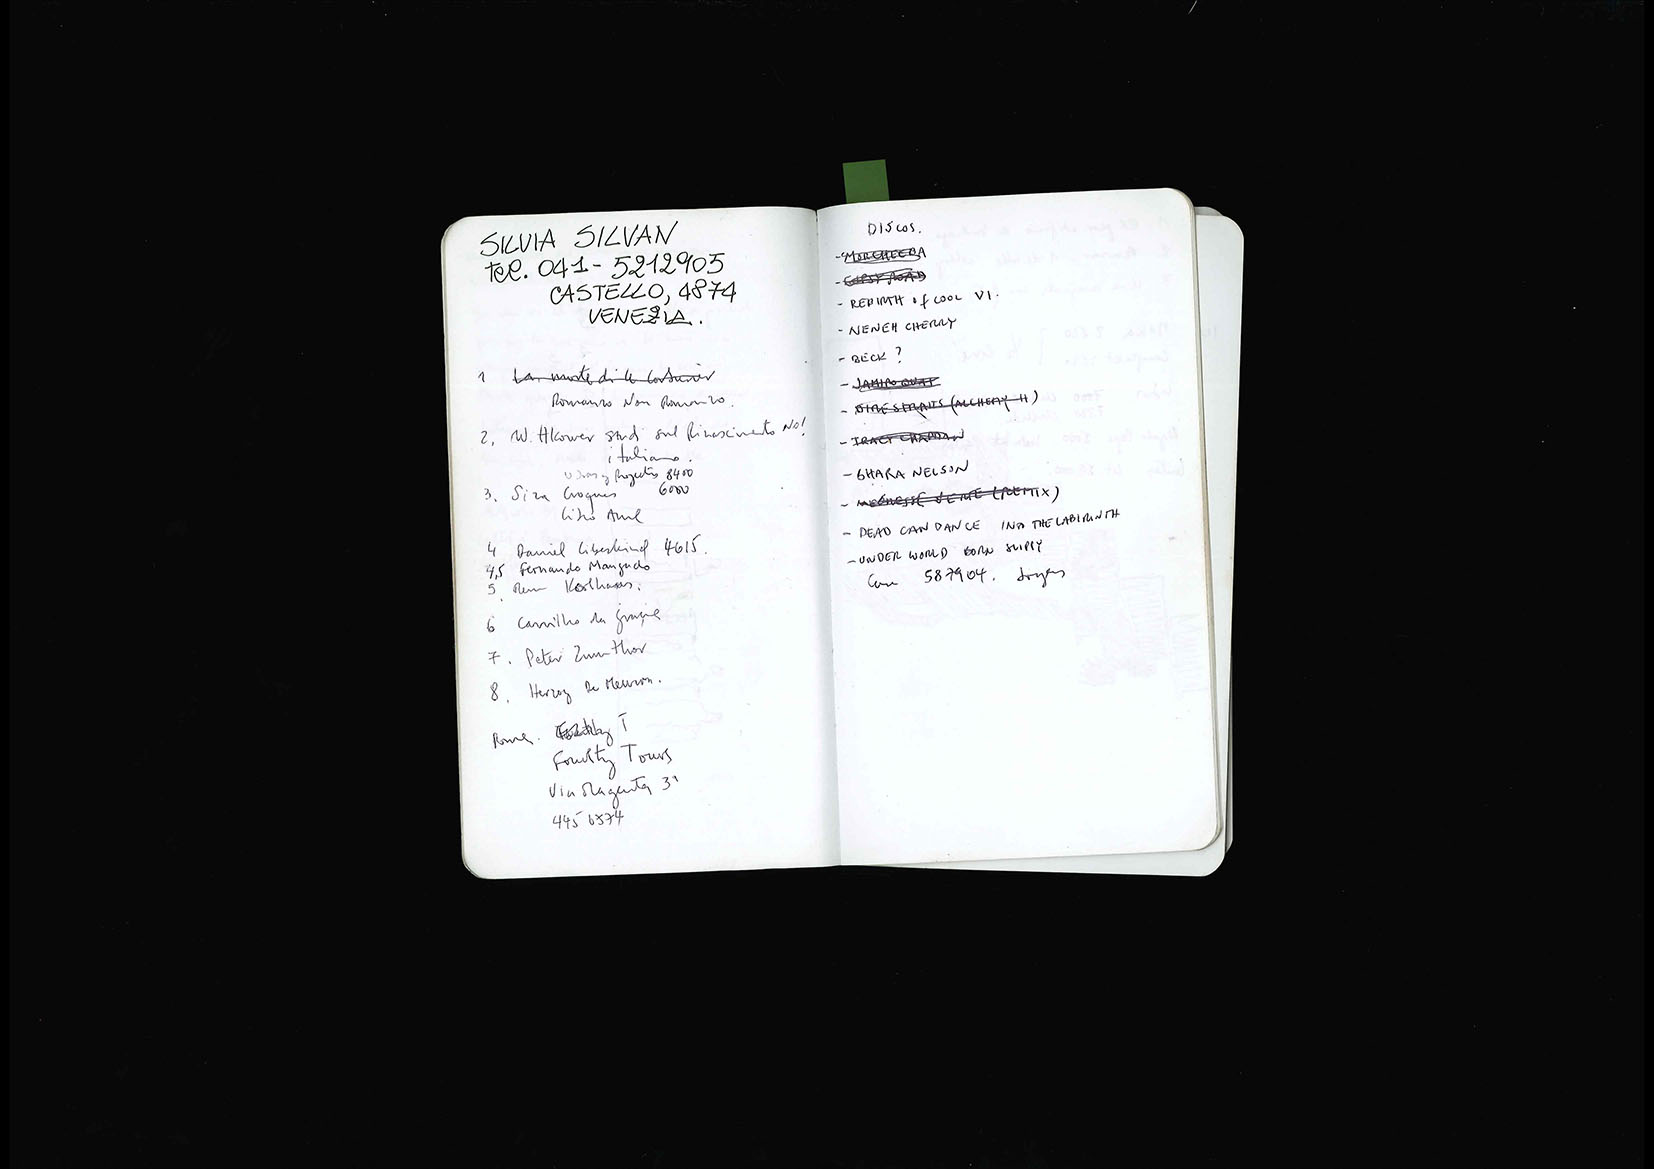 SILVIA SILVAN
Tel. 041 - 5212905
CASTELLO, 4874
VENEZIA.
1 La morte di Le Corbusier
Romanzo Non Romanzo.
2. W. studi sul Rinascimento NO!
italiano.
8400
3. Siza Croquis 6000
4 Daniel Libeskind 4615.
4,5 Fernando Mangado
5. Rem Koolhaas.
6 Carrilho da Graça
7. Peter Zumthor
8. Herzog De Meuron.
Roma. T
Fourlty Tours
Via Magenta 3ª
445 6874
DISCOS.
- MORCHEEBA
- REBIRTH of COOL VI.
- NENEH CHERRY
- BECK ?
- JAMIROQUAI
- DIRE STRAITS (ALCHEMY II)
- TRACY CHAPMAN
- SHARA NELSON
- (REMIX)
- DEAD CAN DANCE INTO THE LABIRINTH
- UNDER WORLD BORN SLIPPY
587904.